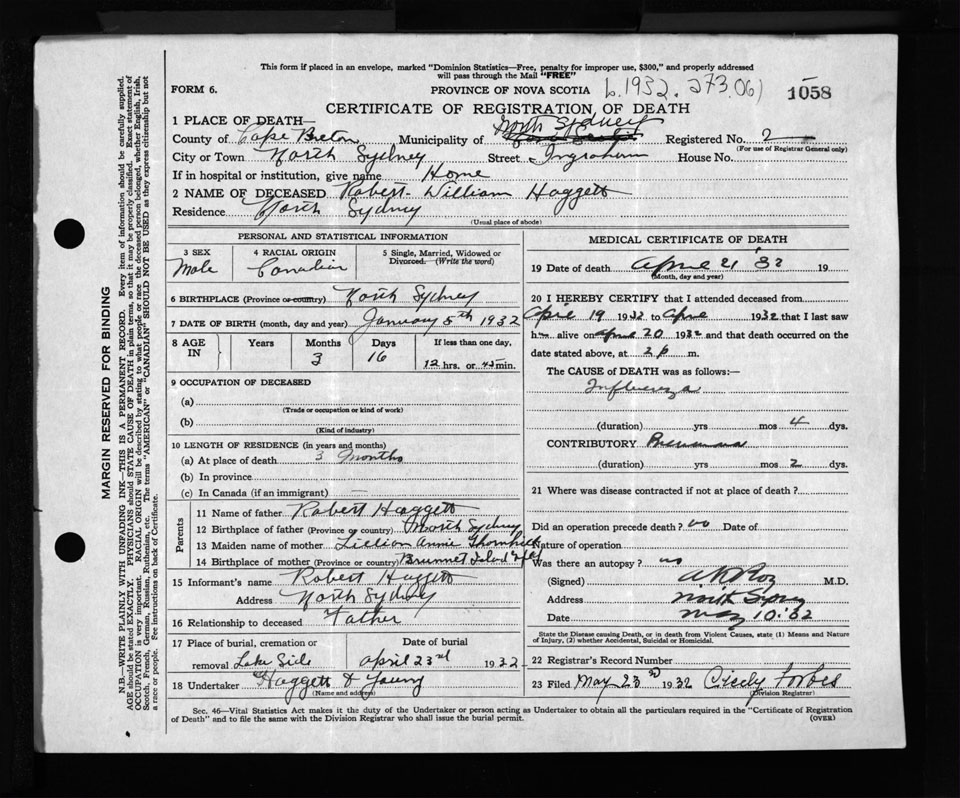 This form if placed in an envelope, marked "Dominion Statistics—Free, penalty for improper use, $300," and properly addressed
will pass through the Mail "FREE"
FORM 6. PROVINCE OF NOVA SCOTIA b. 1932. 273.06) 1058
CERTIFICATE OF REGISTRATION OF DEATH
1 PLACE OF DEATH—
County of Cape Breton Municipality of North Sydney Registered No. 2
(For use of Registrar General only)
City or Town North Sydney Street Ingraham House No.
If in hospital or institution, give name Home
2 NAME OF DECEASED Robert William Haggett
Residence North Sydney
(Usual place of abode)
PERSONAL AND STATISTICAL INFORMATION
3 SEX 4 RACIAL ORIGIN 5 Single, Married, Widowed or
Divorced. (Write the word)
Male Canadian
6 BIRTHPLACE (Province or country) North Sydney
7 DATE OF BIRTH (month, day and year) January 5th 1932
8 AGE IN Years Months Days If less than one day,
3 16 12 hrs. or 45 min.
9 OCCUPATION OF DECEASED
(a)
(Trade or occupation or kind of work)
(b)
(Kind of industry)
10 LENGTH OF RESIDENCE (in years and months)
(a) At place of death 3 Months
(b) In province
(c) In Canada (if an immigrant) —
Parents
11 Name of father Robert Haggett
12 Birthplace of father (Province or country) North Sydney
13 Maiden name of mother Lillian Annie Thornhill
14 Birthplace of mother (Province or country) Brunnet Island Nfld
15 Informant's name Robert Haggett
Address North Sydney
16 Relationship to deceased Father
17 Place of burial, cremation or Date of burial
removal Lake Side April 23rd 1932
18 Undertaker Haggett & Young
(Name and address)
MEDICAL CERTIFICATE OF DEATH
19 Date of death April 21 '32 19
(Month, day and year)
20 I HEREBY CERTIFY that I attended deceased from
April 19 1932 to April 1932 that I last saw
h alive on April 20 1932 and that death occurred on the
date stated above, at 2 p m.
The CAUSE of DEATH was as follows:—
Influenza
(duration) yrs mos 4 dys.
CONTRIBUTORY Pneumonia
(duration) yrs mos 2 dys.
21 Where was disease contracted if not at place of death?
Did an operation precede death? no Date of
Nature of operation
Was there an autopsy? no
(Signed) M.D.
Address North Sydney
Date May 10 '32
State the Disease causing Death, or in death from Violent Causes, state (1) Means and Nature
of Injury, (2) whether Accidental, Suicidal or Homicidal.
22 Registrar's Record Number
23 Filed May 23rd 1932 Cicely Forbes
(Division Registrar)
Sec. 46—Vital Statistics Act makes it the duty of the Undertaker or person acting as Undertaker to obtain all the particulars required in the "Certificate of Registration
of Death" and to file the same with the Division Registrar who shall issue the burial permit. (OVER)
MARGIN RESERVED FOR BINDING
N.B.—WRITE PLAINLY WITH UNFADING INK—THIS IS A PERMANENT RECORD. Every item of information should be carefully supplied.
AGE should be stated EXACTLY. PHYSICIANS should STATE CAUSE OF DEATH in plain terms, so that it may be properly classified. Exact statement of
OCCUPATION is very important. RACIAL ORIGIN will be described by stating to what people or race the deceased person belonged, whether English, Irish,
Scotch, French, German, Russian, Ruthenian, etc. The terms "AMERICAN" or "CANADIAN" SHOULD NOT BE USED as they express citizenship but not
a race or people. Fee instructions on back of Certificate.